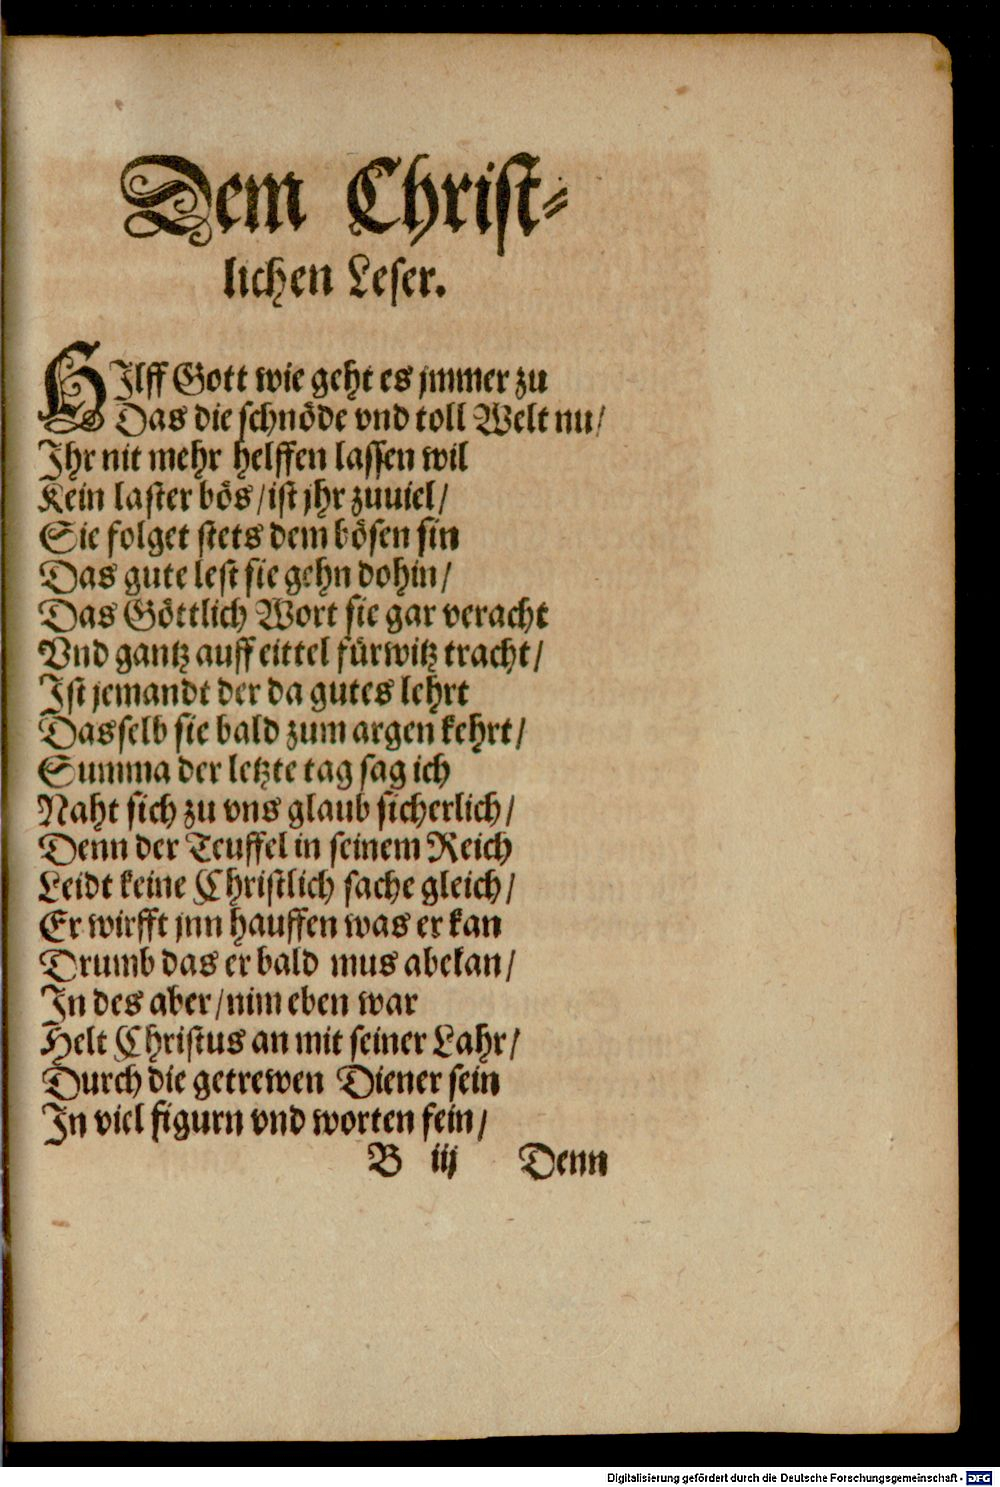 Dem Christ-
lichen Leser.
HIlff Gott wie geht es jmmer zu
Das die schnöde vnd toll Welt nu/
Ihr nit mehr helffen lassen wil
Kein laster bös/ist jhr zuuiel/
Sie folget stets dem bösen sin
Das gute lest sie gehn dohin/
Das Göttlich Wort sie gar veracht
Vnd gantz auff eittel fürwitz tracht/
Ist jemandt der da gutes lehrt
Dasselb sie bald zum argen kehrt/
Summa der letzte tag sag ich
Naht sich zu vns glaub sicherlich/
Denn der Teuffel in seinem Reich
Leidt keine Christlich sache gleich/
Er wirfft jnn hauffen was er kan
Drumb das er bald mus abelan/
In des aber/nim eben war
Helt Christus an mit seiner Lahr/
Durch die getrewen Diener sein
In viel figurn vnd worten fein/
B iij Denn
Digitalisierung gefördert durch die Deutsche Forschungsgemeinschaft - DFG